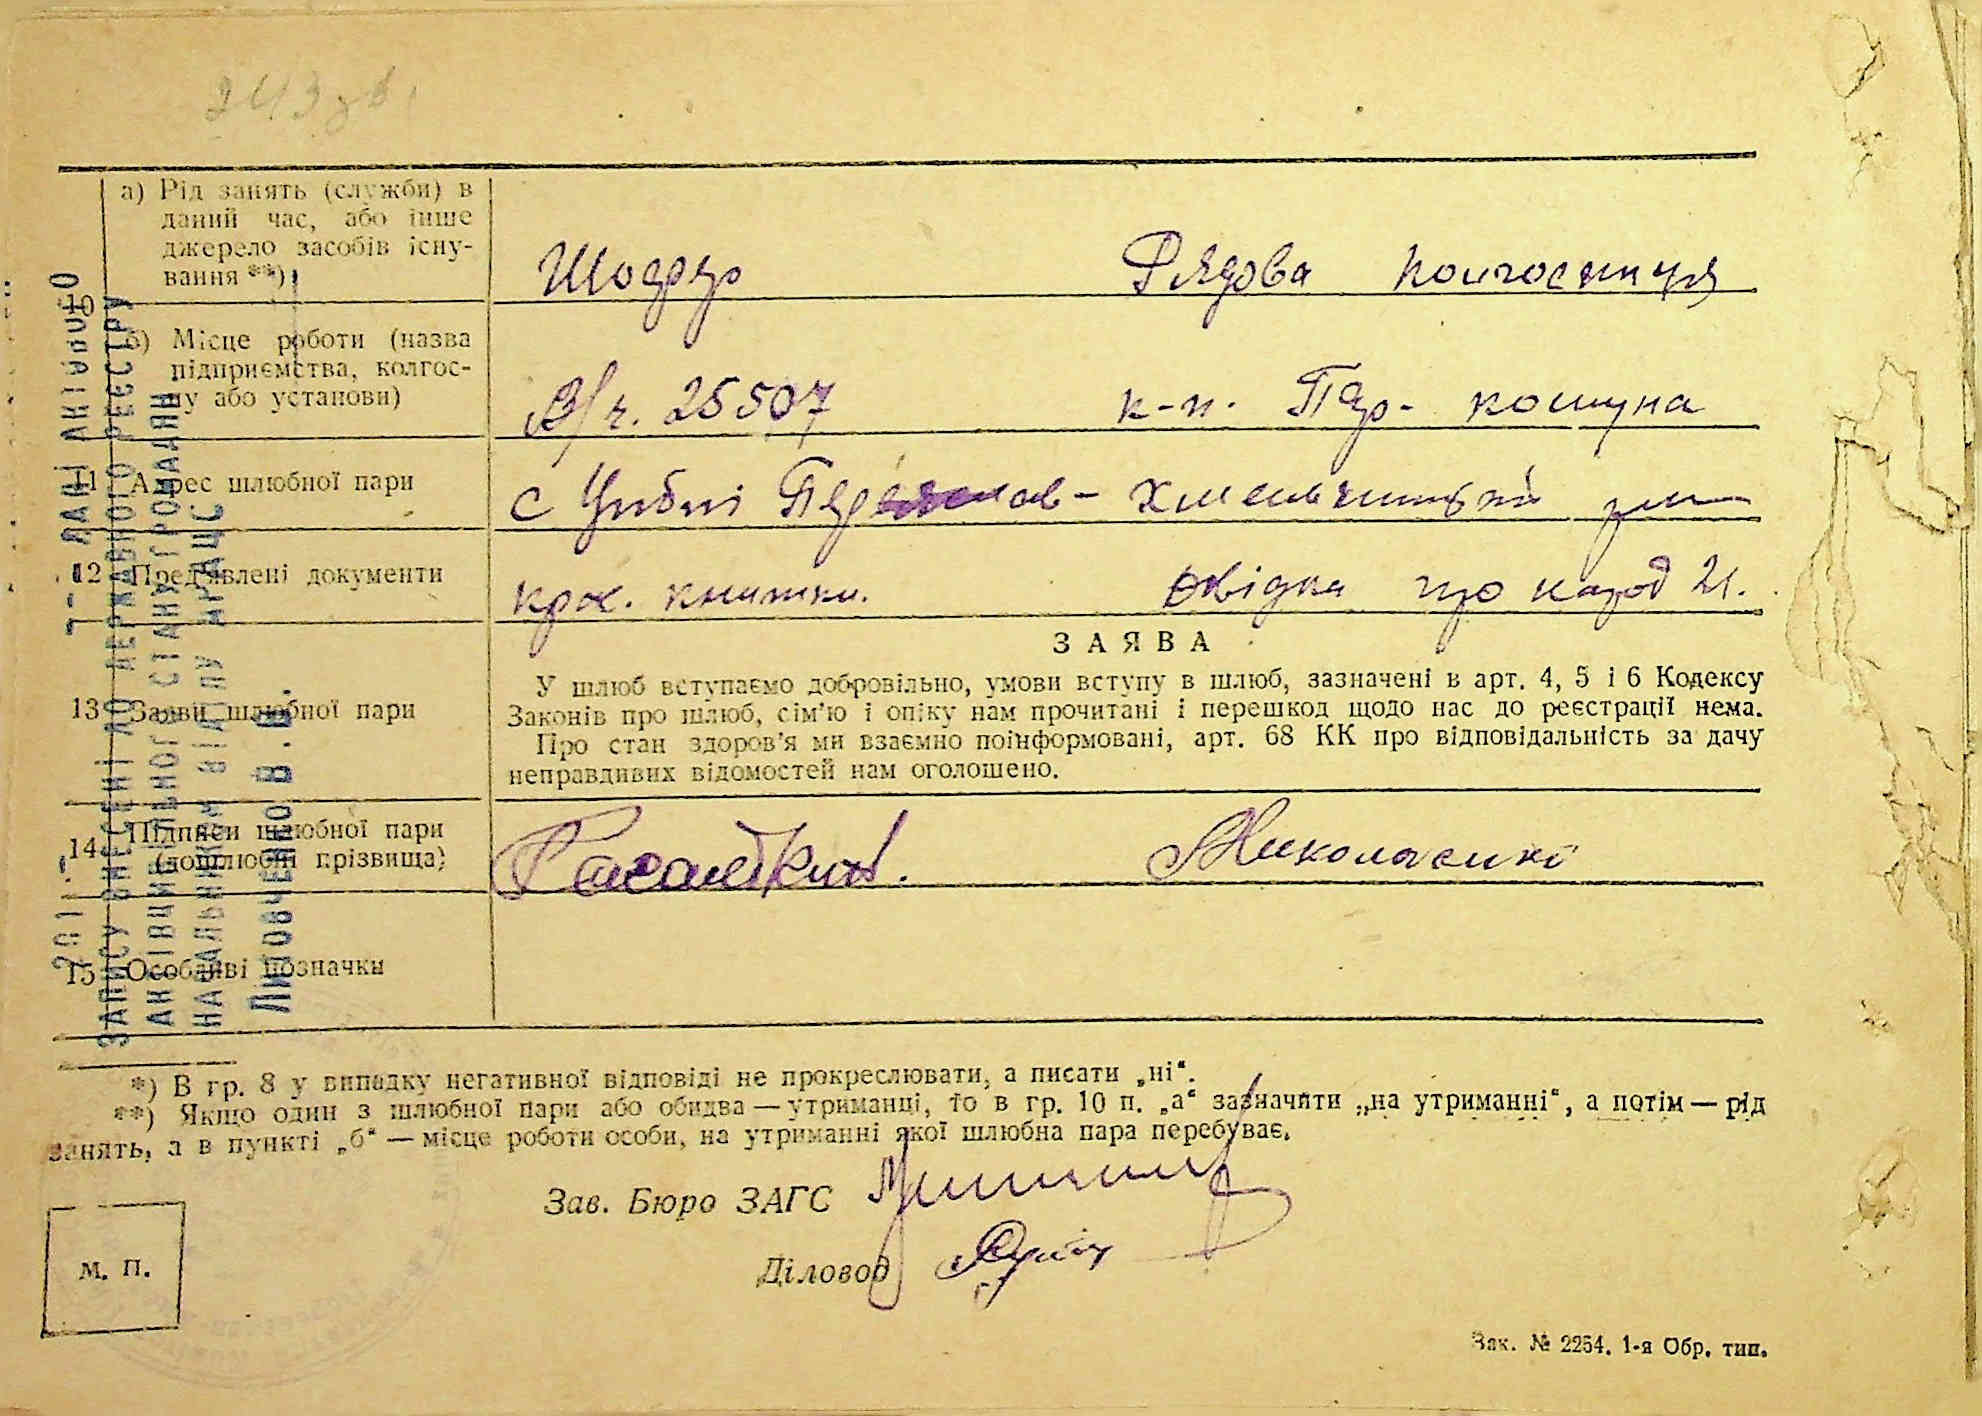 243 зв
а) Рід занять (служби) в
даний час, або інше
джерело засобів існу-
вання **)
Шофер Рядова колгоспниця
10
б) Місце роботи (назва
підприємства, колгос-
пу або установи)
В/ч. 25507 к-п. Пар- комуна
11 Адрес шлюбної пари
с Циблі Переяслав-Хмельницький
12 Пред'явлені документи
кра. книжки. Довідка про народ 21.
ЗАЯВА
13 Заяви шлюбної пари
У шлюб вступаємо добровільно, умови вступу в шлюб, зазначені в арт. 4, 5 і 6 Кодексу
Законів про шлюб, сім'ю і опіку нам прочитані і перешкод щодо нас до реєстрації нема.
Про стан здоров'я ми взаємно поінформовані, арт. 68 КК про відповідальність за дачу
неправдивих відомостей нам оголошено.
14 Підписи шлюбної пари
(дошлюбні прізвища)
Миколаєнко
15 Особливі позначки
ДАНІ АКТОВОГО
ЗАПИСУ ВНЕСЕНІ ДО ДЕРЖАВНОГО РЕЄСТРУ
АКТІВ ЦИВІЛЬНОГО СТАНУ ГРОМАДЯН
НАЧАЛЬНИКОМ ВІДДІЛУ ДРАЦС
Литовченко В.Ф.
*) В гр. 8 у випадку негативної відповіді не прокреслювати, а писати „ні“.
**) Якщо один з шлюбної пари або обидва — утриманці, то в гр. 10 п. „а“ зазначити „на утриманні“, а потім — рід
занять, а в пункті „б“ — місце роботи особи, на утриманні якої шлюбна пара перебуває.
Зав. Бюро ЗАГС
Діловод
М. П.
Зак. № 2254. 1-я Обр. тип.